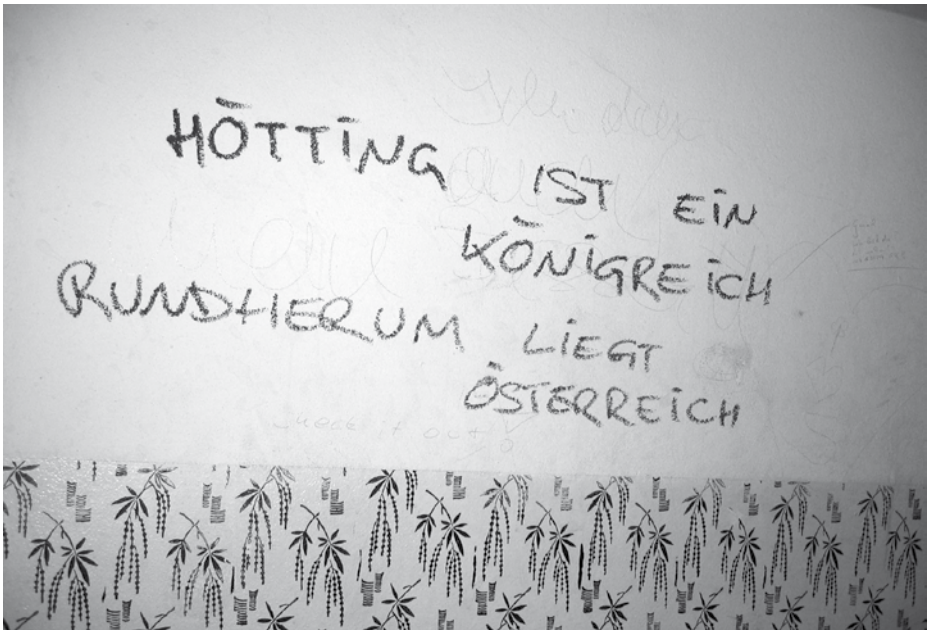 HÖTTING IST EIN
KÖNIGREICH
RUNDHERUM LIEGT
ÖSTERREICH
check it out!